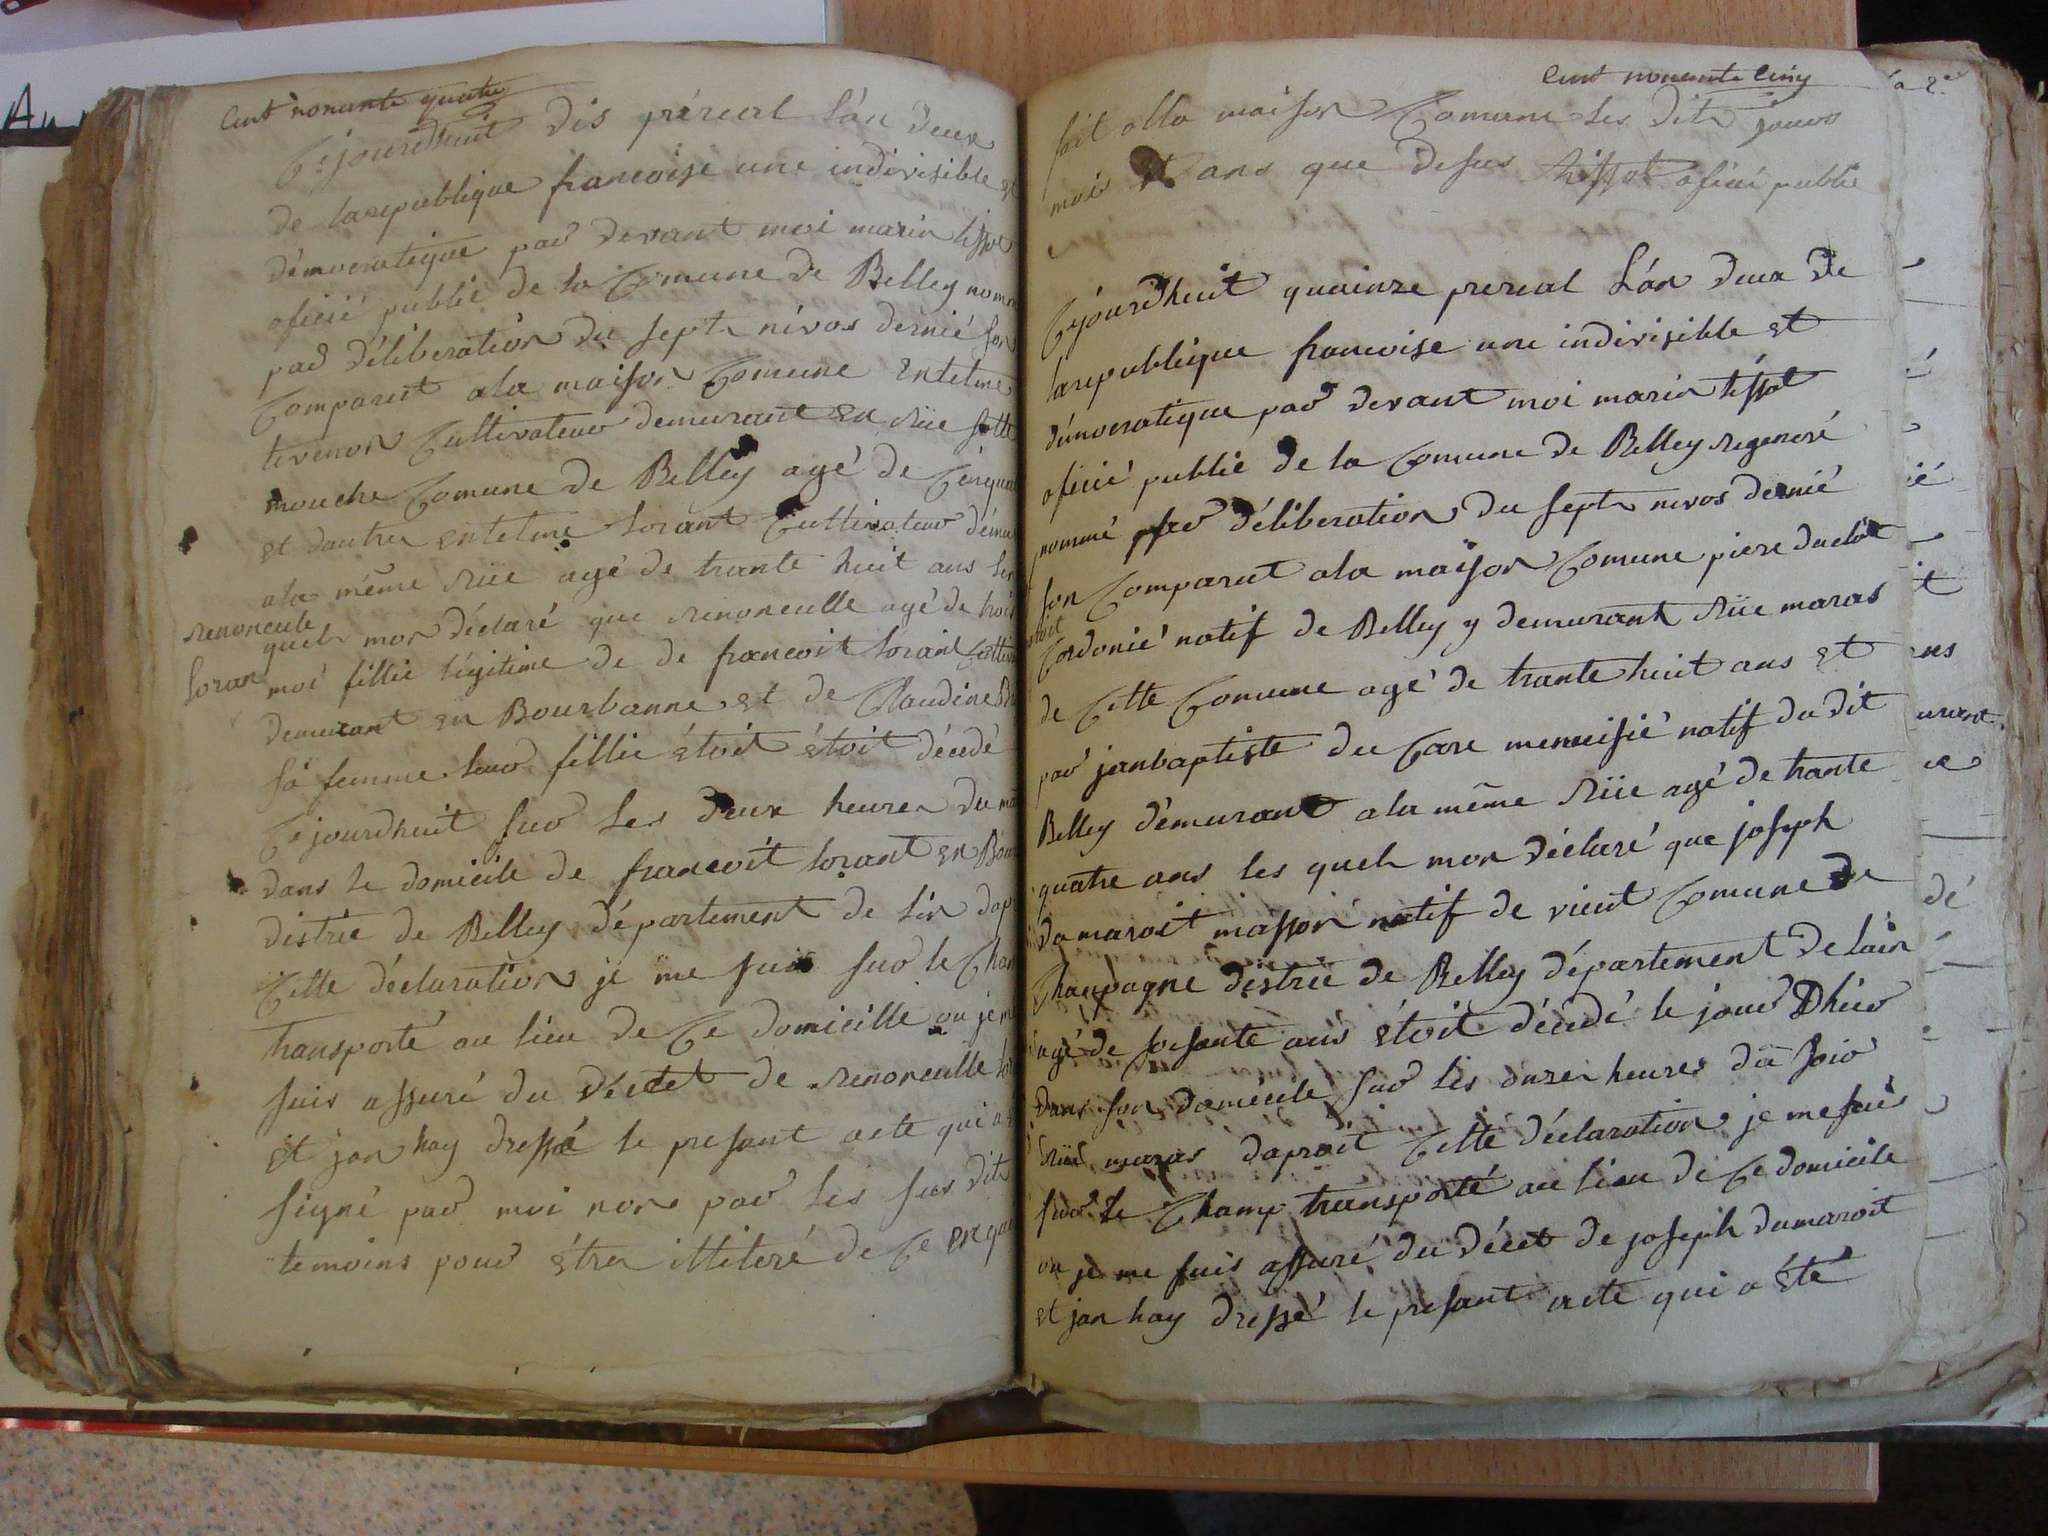 Cent nonante quatre
Cejourdhuit dis prérial l'an deux
de la republique francoise une indivisible et
démocratique par devant moi marin tissot
oficié publié de la Comune de Belley nommé
par déliberation du sept nivos dernié son
Comparent a la maison Comune Entelme
Cultivateur demurant en rüe sotte
mouche Comune de Belley agé de Cinqua
et dautre entelme lorant Cultivateur dému
a la méme rüe agé de trante huit ans les
renoncule
quels mon déclaré que renonculle agé de trois
loran
moi fillie légitime de de francoit lorant Cultiv
demurant en Bourbanne et de Claudine
sa femme leur fillie étoit étoit décédé
Cejourdhuit sur les deux heures du ma
dans le domicile de francoit lorant en Bou
distric de Belley département de lin dap
Cette déclaration je me suis sur le Cham
transporté au lieu de Ce domicille ou je me
suis assuré du décet de renonculle lor
et jan hay dressé le presant acte qui a
signé par moi non par les sus dits
temoins pour étre illiteré de Ce enqui
Cent nonante Cinq
fait a la maison Comune les dits jours
mois et ans que desus tissot oficié publié
Cejourdhuit quainze prerial l'an deux de
la republique francoise une indivisible et
démocratique par devant moi marin tissot
oficié publié de la Comune de Belley regeneré
nommé par déliberation du sept nivos dernié
son Comparut a la maison Comune piere duclot
Cordonié natif de Belley y demurant rüe maras
de Cette Comune agé de trante huit ans et
par janbaptiste du Care menuisié natif du dit
Belley démurant a la méme rüe agé de trante
quatre ans les quels mon déclaré que joseph
damaroit masson natif de vieut Comune de
Champagne distric de Belley département de lain
agé de soisante ans étoit décédé le jour Dhier
dans son domicile sur les onzes heures du soir
rüe maras daproit Cette déclaration je me suis
sur le Champ transporté au lieu de Ce domicile
ou je me suis assuré du décet de joseph damaroit
et jan hay dressé le presant acte qui a été